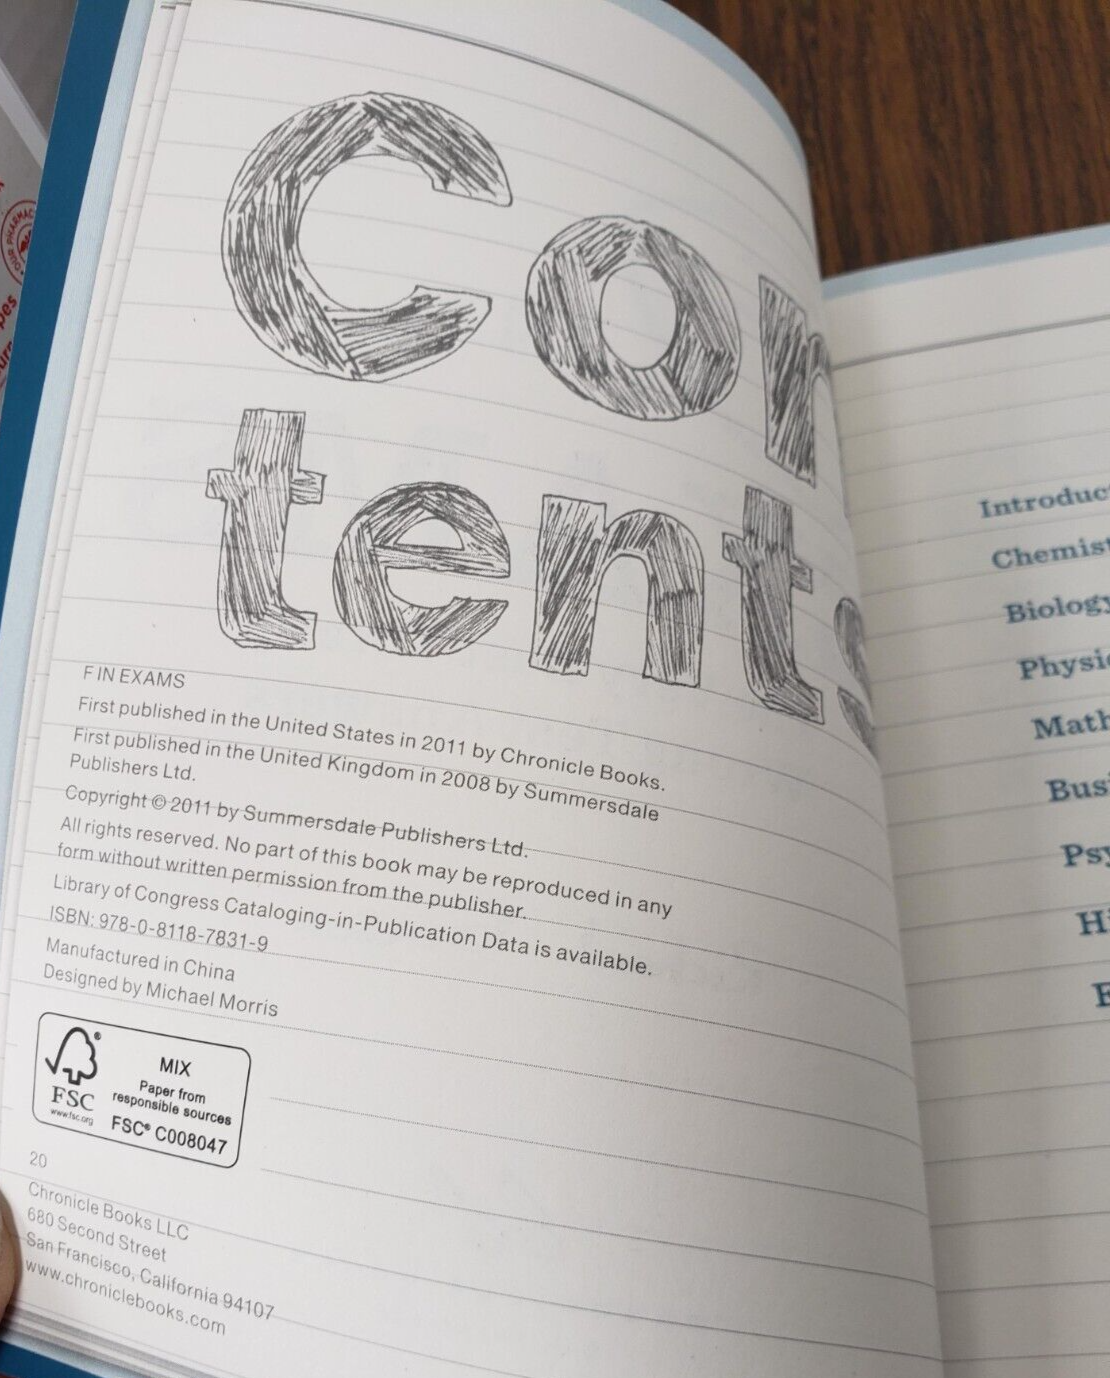 Con
tents
F IN EXAMS
First published in the United States in 2011 by Chronicle Books.
First published in the United Kingdom in 2008 by Summersdale
Publishers Ltd.
Copyright © 2011 by Summersdale Publishers Ltd.
All rights reserved. No part of this book may be reproduced in any
form without written permission from the publisher.
Library of Congress Cataloging-in-Publication Data is available.
ISBN: 978-0-8118-7831-9
Manufactured in China
Designed by Michael Morris
®
FSC
www.fsc.org
MIX
Paper from
responsible sources
FSC® C008047
20
Chronicle Books LLC
680 Second Street
San Francisco, California 94107
www.chroniclebooks.com
Introduc
Chemist
Biology
Physic
Math
Busi
Psy
Hi